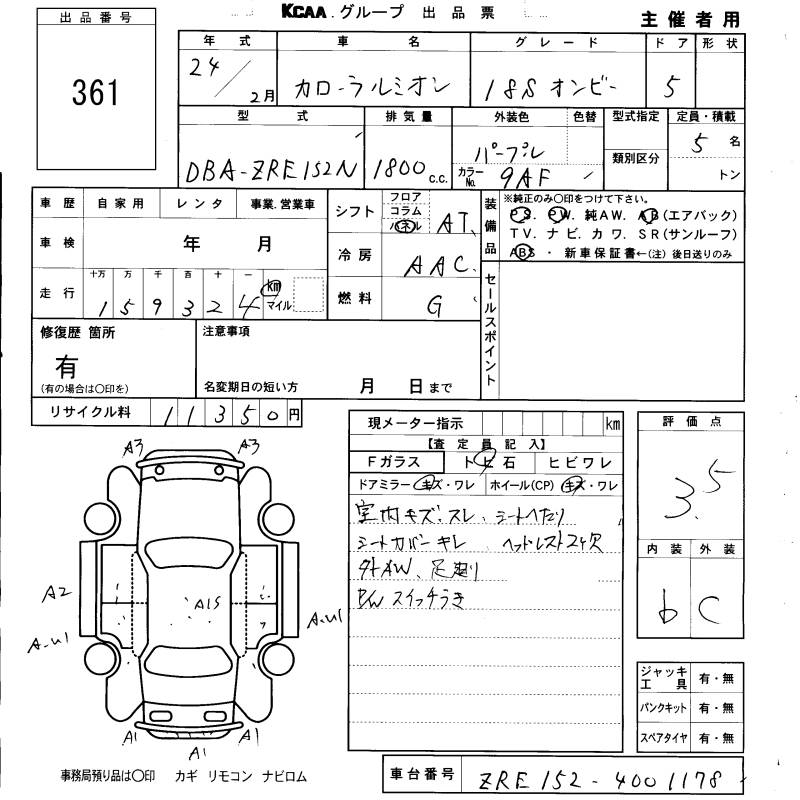 KCAA.グループ 出品票
主催者用
出品番号
361
年式 車名 グレード ドア 形状
24/2月 カローラルミオン 18S オンビー 5
型式 排気量 外装色 色替 型式指定 定員・積載
DBA-ZRE152N 1800c.c. パープル カラーNo. 9AF 類別区分 5名
トン
車歴 自家用 レンタ 事業.営業車
車検 年 月
走行 十万 万 千 百 十 一
159324 km マイル
シフト フロア コラム パネル AT
冷房 AAC
燃料 G
装備品 ※純正のみ〇印をつけて下さい。
PS. PW. 純AW. AB(エアバック)
TV. ナビ. カワ. SR(サンルーフ)
ABS ・ 新車保証書←(注)後日送りのみ
セールスポイント
修復歴 箇所
有
(有の場合は〇印を)
注意事項
名変期日の短い方 月 日まで
リサイクル料 11350円
現メーター指示 km
【査定員記入】
Fガラス トビ石 ヒビワレ
ドアミラー キズ・ワレ ホイール(CP) キズ・ワレ
室内キズ、スレ、シートへたり
シートカバーキレ ヘッドレスト2ヶ欠
外AW、足廻り
スイッチうき
評価点
3.5
内装 外装
b C
A3 A3
A2
A15
A-U1
A-U1
A1 A1 A1
ジャッキ工具 有・無
パンクキット 有・無
スペアタイヤ 有・無
事務局預り品は〇印 カギ リモコン ナビロム
車台番号 ZRE152-4001178